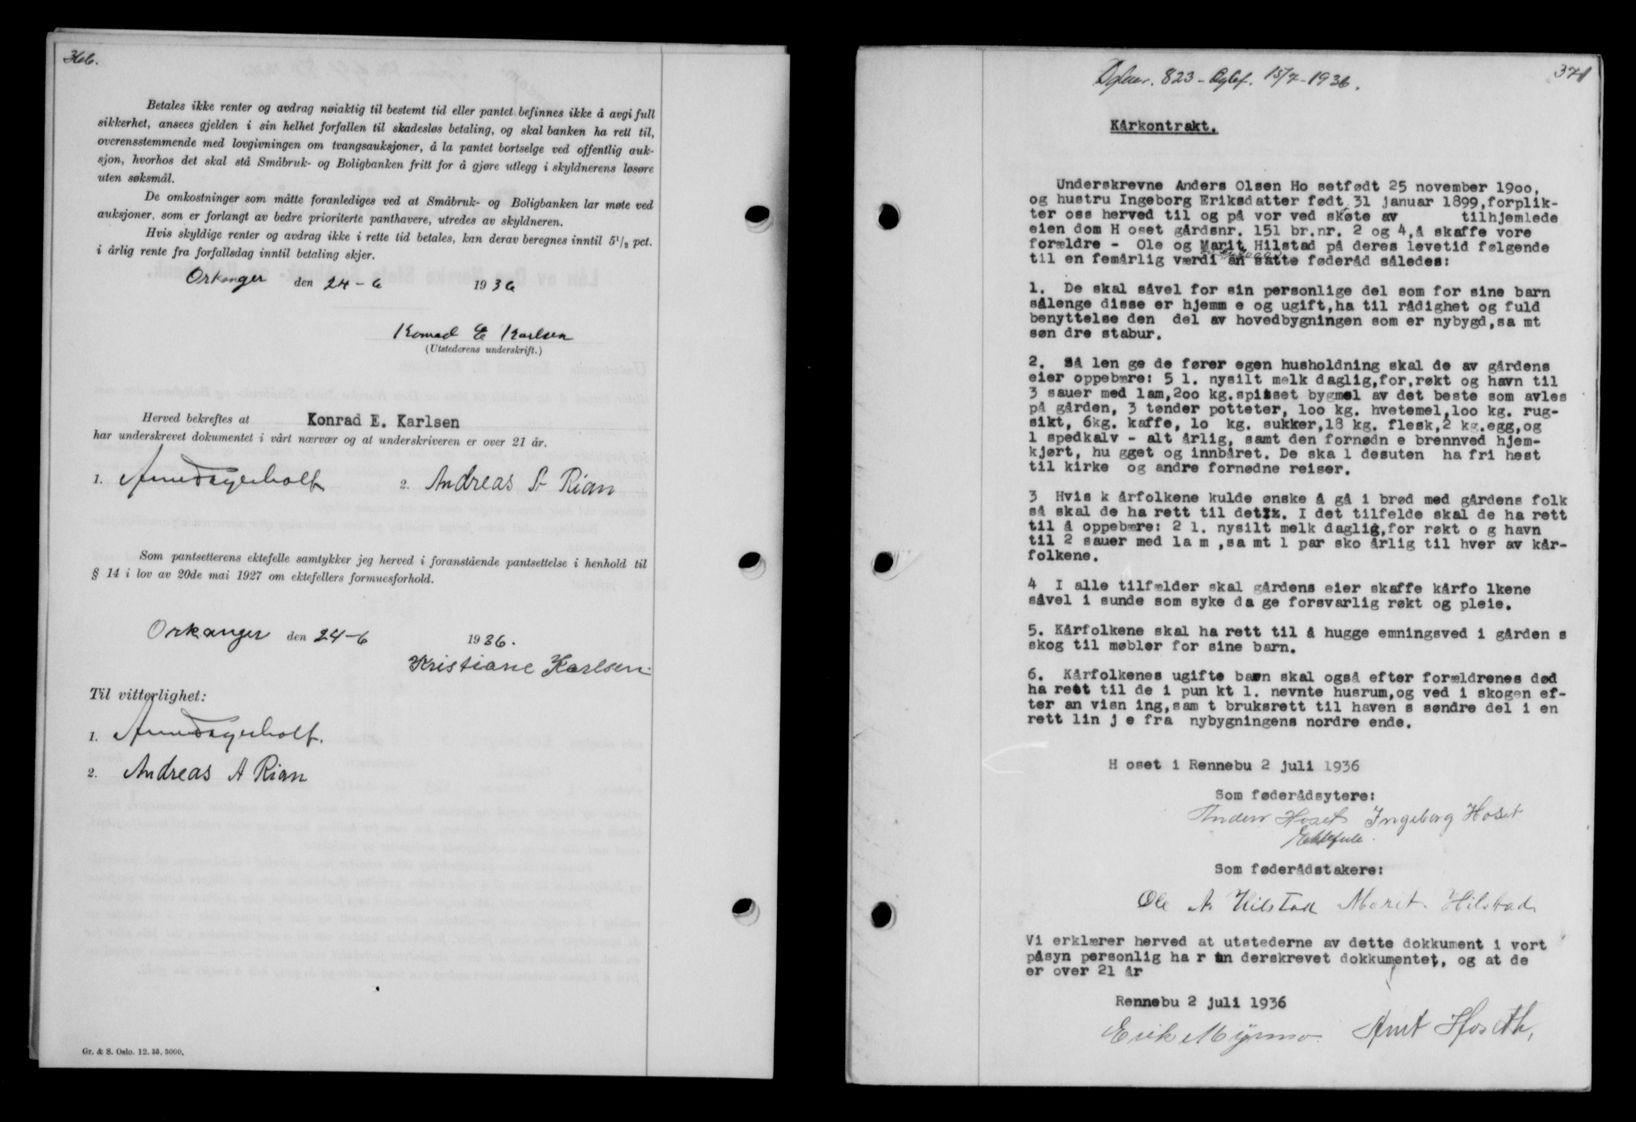 366.
Betales ikke renter og avdrag nøiaktig til bestemt tid eller pantet befinnes ikke å avgi full
sikkerhet, ansees gjelden i sin helhet forfallen til skadesløs betaling, og skal banken ha rett til,
overensstemmende med lovgivningen om tvangsauksjoner, å la pantet bortselge ved offentlig auk-
sjon, hvorhos det skal stå Småbruk- og Boligbanken fritt for å gjøre utlegg i skyldnerens løsøre
uten søksmål.
De omkostninger som måtte foranlediges ved at Småbruk- og Boligbanken lar møte ved
auksjoner, som er forlangt av bedre prioriterte panthavere, utredes av skyldneren.
Hvis skyldige renter og avdrag ikke i rette tid betales, kan derav beregnes inntil 5 1/2 pct.
i årlig rente fra forfallsdag inntil betaling skjer.
Orkanger den 24-6 1936
Konrad E Karlsen
(Utstederens underskrift.)
Herved bekreftes at Konrad E. Karlsen
har underskrevet dokumentet i vårt nærvær og at underskriveren er over 21 år.
1. 2. Andreas A Rian
Som pantsetterens ektefelle samtykker jeg herved i foranstående pantsettelse i henhold til
§ 14 i lov av 20de mai 1927 om ektefellers formuesforhold.
Orkanger den 24-6 1936.
Kristiane Karlsen.
Til vitterlighet:
1.
2. Andreas A Rian
Gr. & S. Oslo. 12. 35. 5000.
823 - 15/7-1936.
371
Kårkontrakt.
Underskrevne Anders Olsen Ho setfødt 25 november 19oo,
og hustru Ingeborg Eriksdatter født 31 januar 1899,forplik-
ter oss herved til og på vor ved skøte av tilhjemlede
eien dom H oset gårdsnr. 151 br.nr. 2 og 4,å skaffe vore
forældre - Ole og Marit Hilstad på deres levetid følgende
til en femårlig værdi an satte føderåd således:
1. De skal såvel for sin personlige del som for sine barn
sålenge disse er hjemm e og ugift,ha til rådighet og fuld
benyttelse den del av hovedbygningen som er nybygd,sa mt
søn dre stabur.
2. Så len ge de fører egen husholdning skal de av gårdens
eier oppebære: 5 l. nysilt melk daglig,for,røkt og havn til
3 sauer med lam,2oo kg.spisset bygmel av det beste som avles
på gården, 3 tønder potteter, loo kg. hvetemel,loo kg. rug-
sikt, 6kg. kaffe, lo kg. sukker,18 kg. flesk,2 kg.egg,og
1 spedkalv - alt årlig, samt den fornødn e brennved hjem-
kjørt, hu gget og innbåret. De ska l desuten ha fri hest
til kirke og andre fornødne reiser.
3 Hvis k årfolkene kulde ønske å gå i brød med gårdens folk
så skal de ha rett til dette. I det tilfelde skal de ha rett
til å oppebære: 2 l. nysilt melk daglig,for røkt o g havn
til 2 sauer med la m ,sa mt 1 par sko årlig til hver av kår-
folkene.
4 I alle tilfælder skal gårdens eier skaffe kårfo lkene
såvel i sunde som syke da ge forsvarlig røkt og pleie.
5. Kårfolkene skal ha rett til å hugge emningsved i gården s
skog til møbler for sine barn.
6. Kårfolkenes ugifte barn skal også efter forældrenes død
ha rett til de i pun kt 1. nevnte husrum,og ved i skogen ef-
ter an visn ing,sam t bruksrett til haven s søndre del i en
rett lin j e fra nybygningens nordre ende.
H oset i Rennebu 2 juli 1936
Som føderådsytere:
Anders Hoset Ingeborg Hoset
Som føderådstakere:
Ole A Hilstad Marit Hilstad
Vi erklærer herved at utstederne av dette dokkument i vort
påsyn personlig ha r un derskrevet dokkumentet, og at de
er over 21 år
Rennebu 2 juli 1936
Erik Myrmo. Arnt Hoseth,